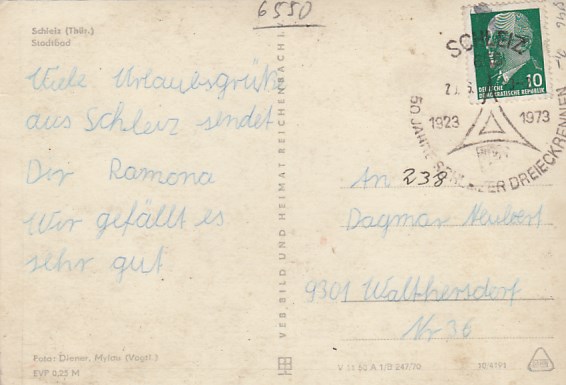 6550
Schleiz (Thür.)
Stadtbad
Viele Urlaubsgrüße
aus Schleiz sendet
Dir Ramona
Wir gefällt es
sehr gut
Foto: Diener, Mylau (Vogtl.)
EVP 0,25 M
VEB BILD UND HEIMAT REICHENBACH I. V.
SCHLEIZ
10
DEUTSCHE
DEMOKRATISCHE REPUBLIK
1923 1973
50 JAHRE SCHLEIZER DREIECKRENNEN
An 238
Dagmar Neubert
9301 Walthersdorf
Nr 36
V 11 50 A 1/B 247/70